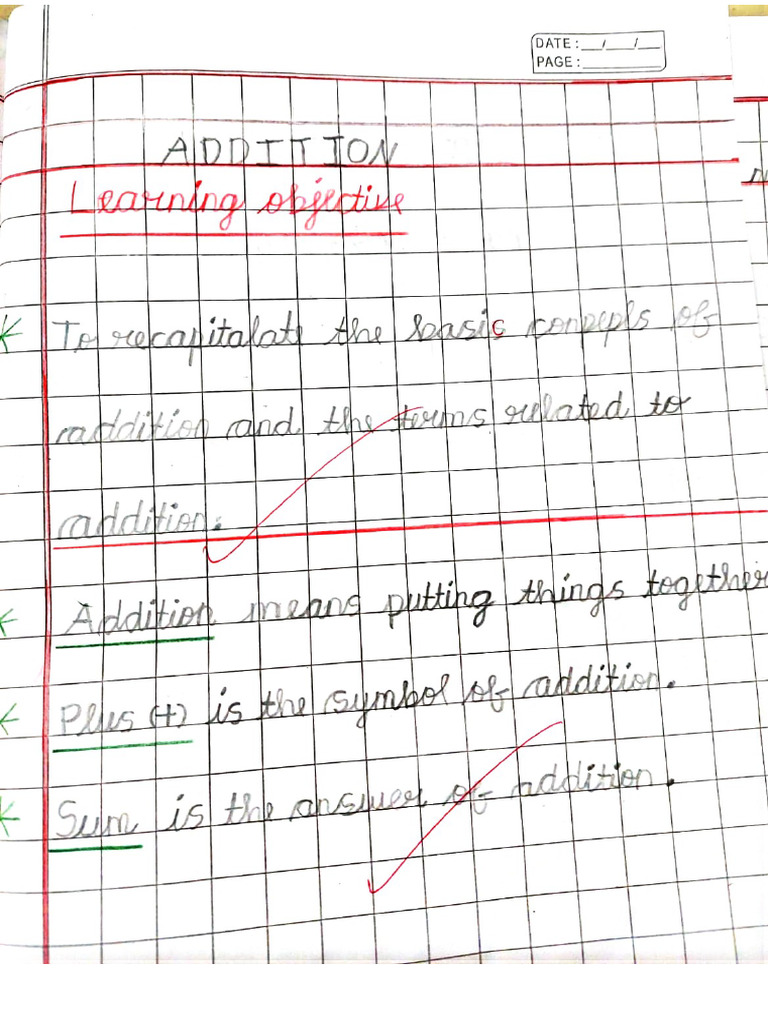 DATE: __/__/__
PAGE: ______
ADDITION
Learning objective
To recapitalate the basic concepts of
addition and the terms related to
addition.
Addition means putting things together
Plus (+) is the symbol of addition.
Sum is the answer of addition.